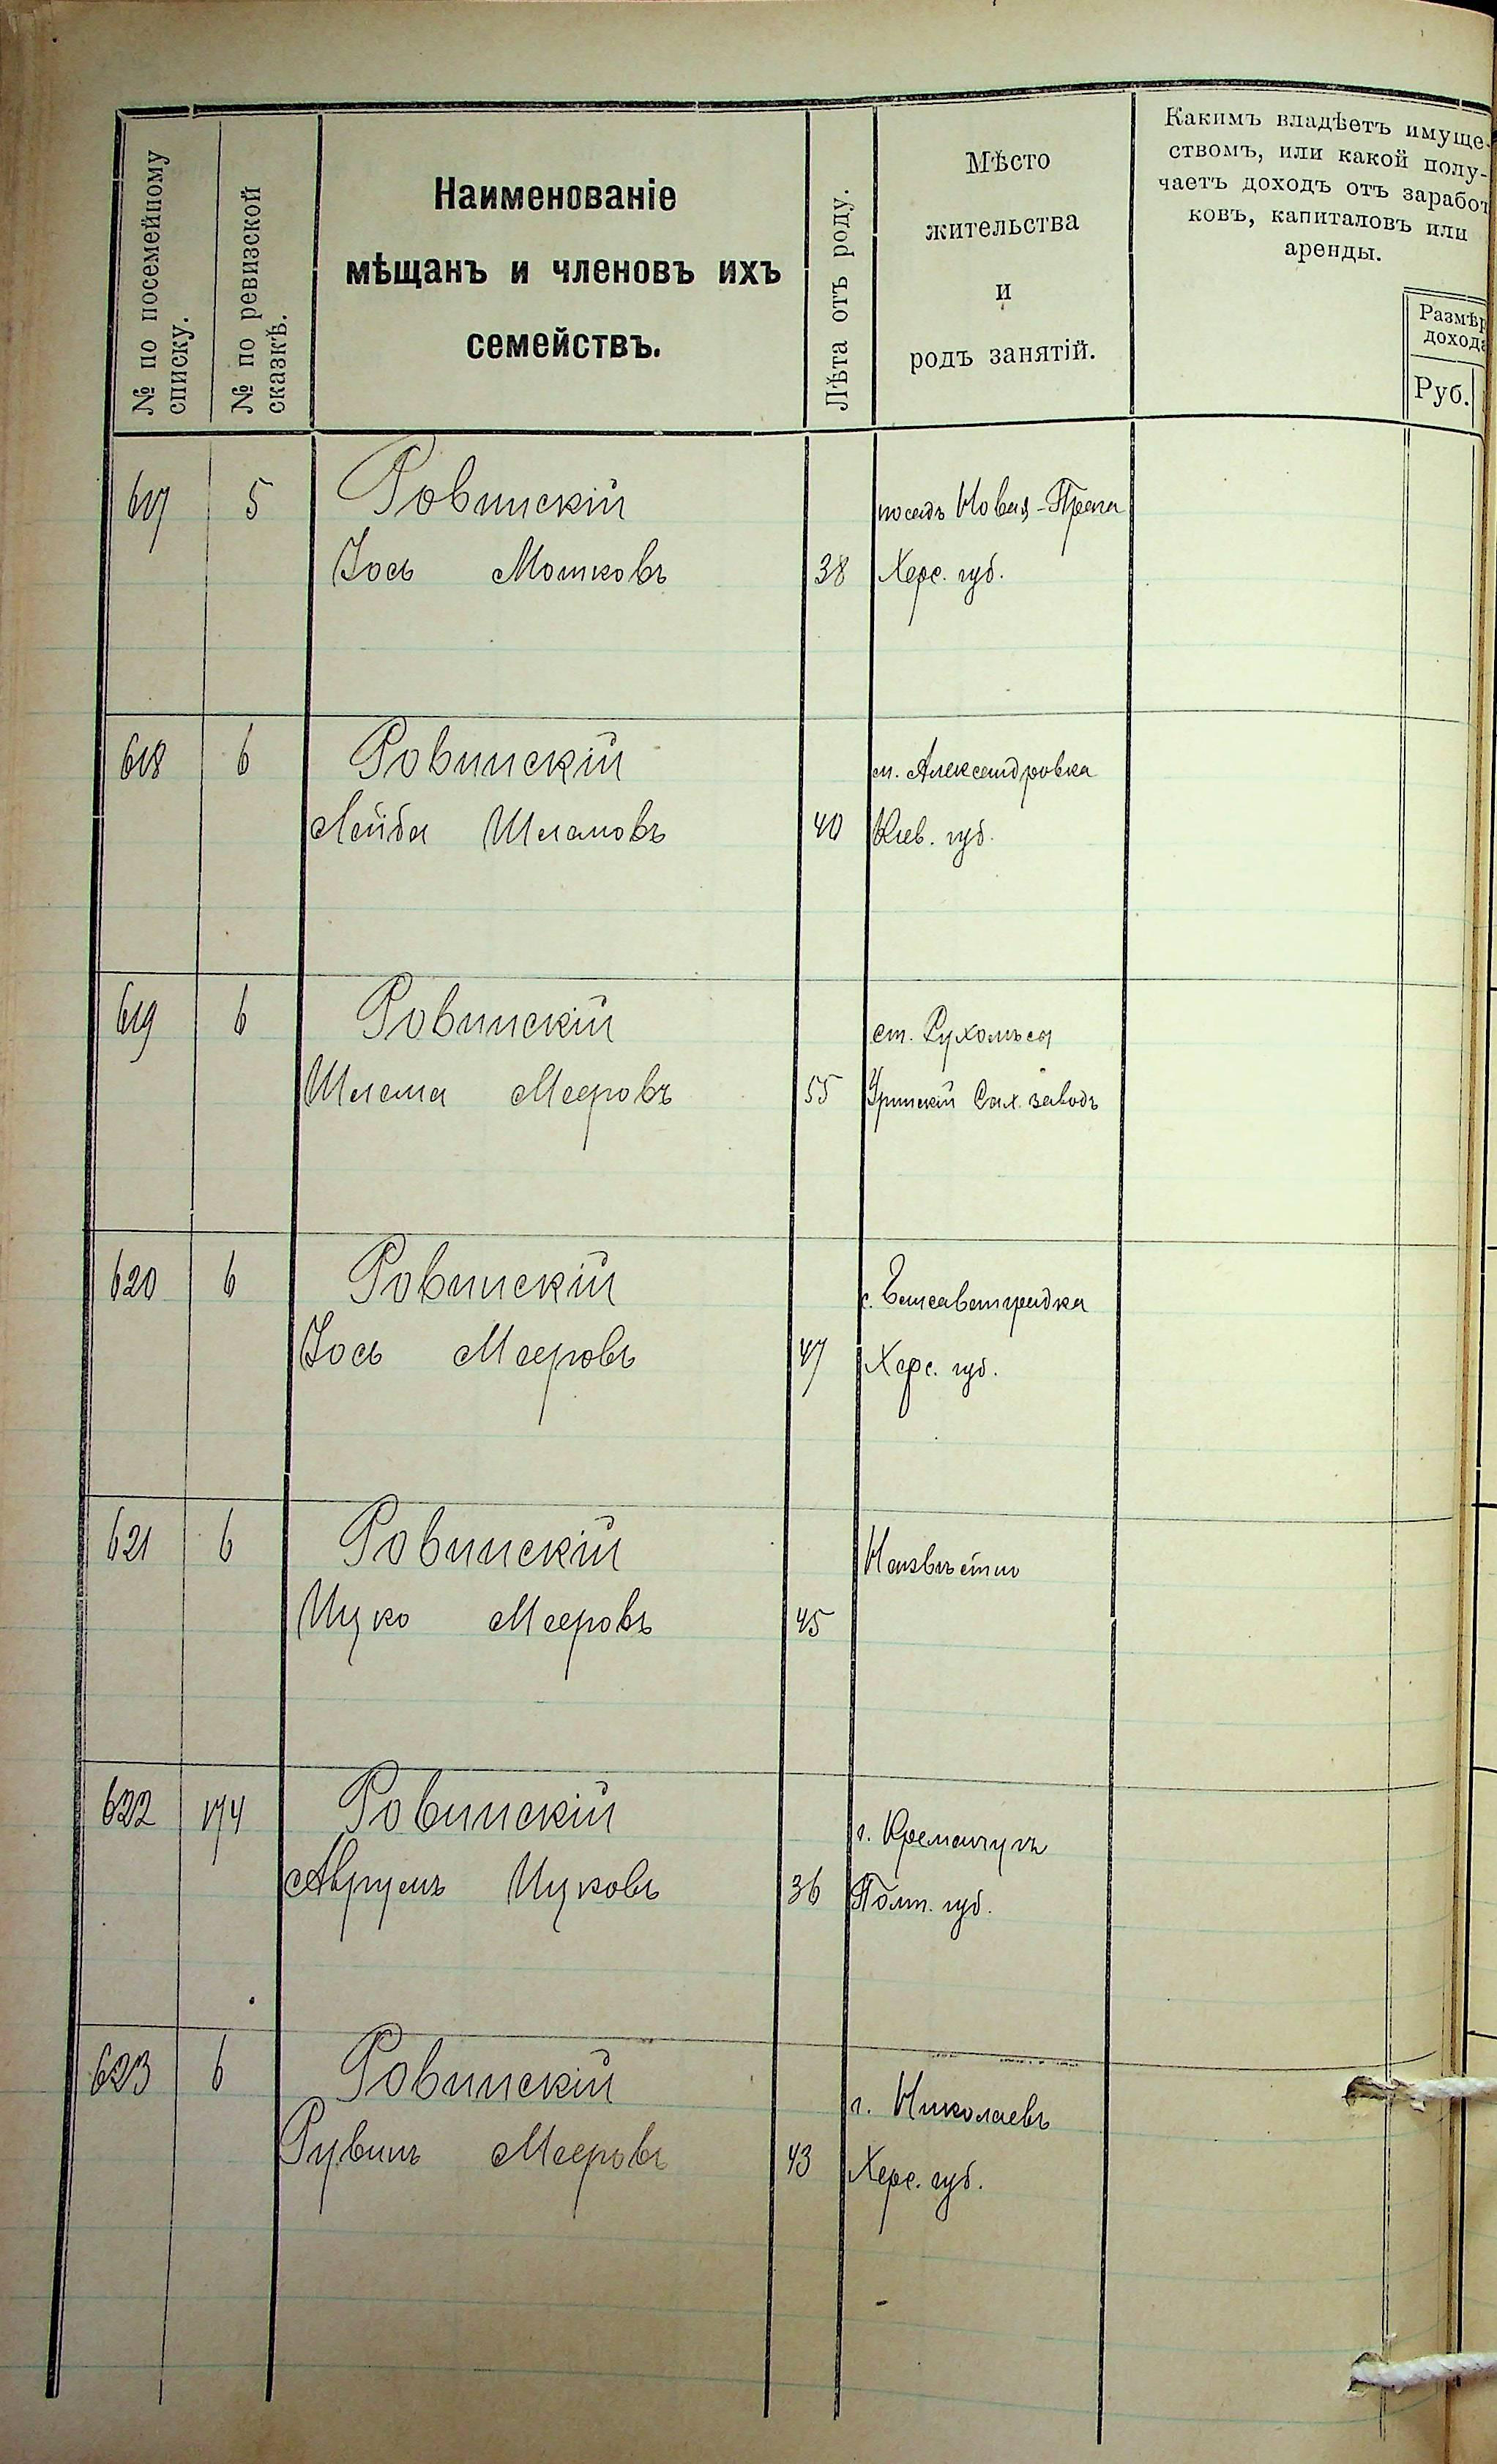 № по посемейному
списку.
№ по ревизской
сказкѣ.
Наименованіе
мѣщанъ и членовъ ихъ
семействъ.
Лѣта отъ роду.
Мѣсто
жительства
и
родъ занятій.
Какимъ владѣетъ имуще-
ствомъ, или какой полу-
чаетъ доходъ отъ заработ
ковъ, капиталовъ или
аренды.
Размѣр
дохода
Руб.
617 5 Ровинскій посадъ Новая-Прага
Іось Мошковъ 38 Херс. губ.
618 6 Ровинскій м. Александровка
Лейба Шлемовъ 40 Кіев. губ.
619 6 Ровинскій ст.
Шлема Мееровъ 55 Сах. заводъ
620 6 Ровинскій с. Елисаветградка
Іось Мееровъ 47 Херс. губ.
621 6 Ровинскій Неизвѣстно
Ицко Мееровъ 45
622 174 Ровинскій г. Кременчугъ
Аврумъ Ицковъ 36 Полт. губ.
623 6 Ровинскій г. Николаевъ
Рувинъ Мееровъ 43 Херс. губ.